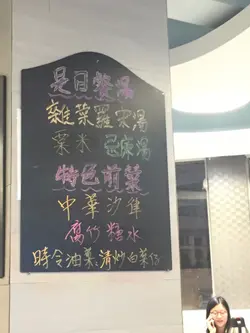 是日餐湯
雜菜羅宋湯
粟米忌廉湯
特色前菜
中華沙律
腐竹糖水
時令油菜:清炒白菜仔